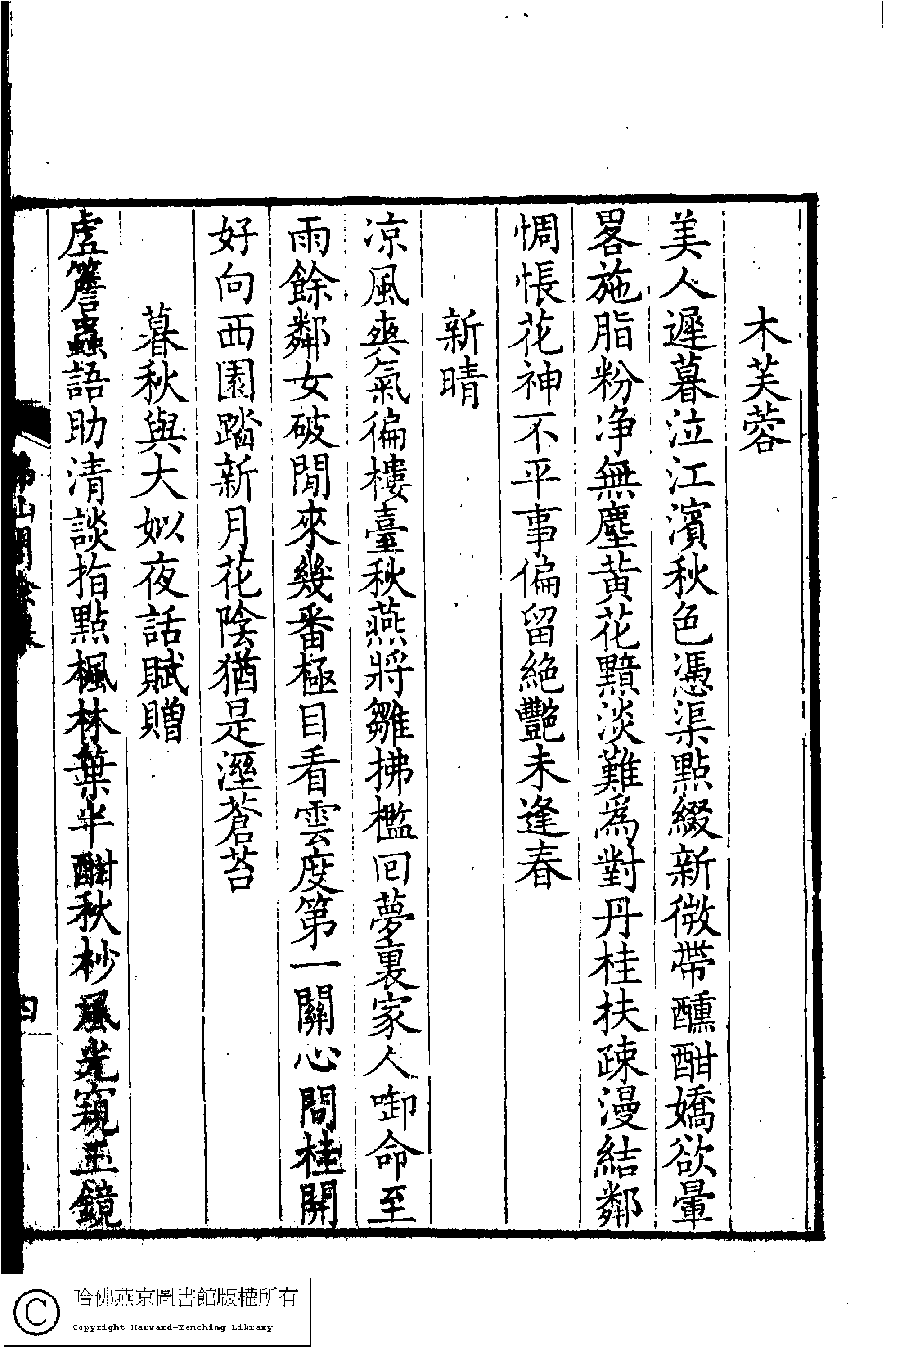 木芙蓉
美人遲暮泣江濱秋色憑渠點綴新微帶醺酣嬌欲暈
畧施脂粉净無塵黃花黯淡難爲對丹桂扶疎漫結鄰
惆悵花神不平事偏留絶艷未逢春
新晴
凉風爽氣徧樓臺秋燕將雛拂檻回夢裏家人啣命至
雨餘鄰女破閒來幾番極目看雲度第一關心問桂開
好向西園踏新月花陰猶是溼蒼苔
暮秋與大姒夜話賦贈
虛簷蟲語助清談指點楓林葉半酣秋杪風光窺玉鏡
四
哈佛燕京圖書館版權所有
Copyright Harvard-Yenching Library